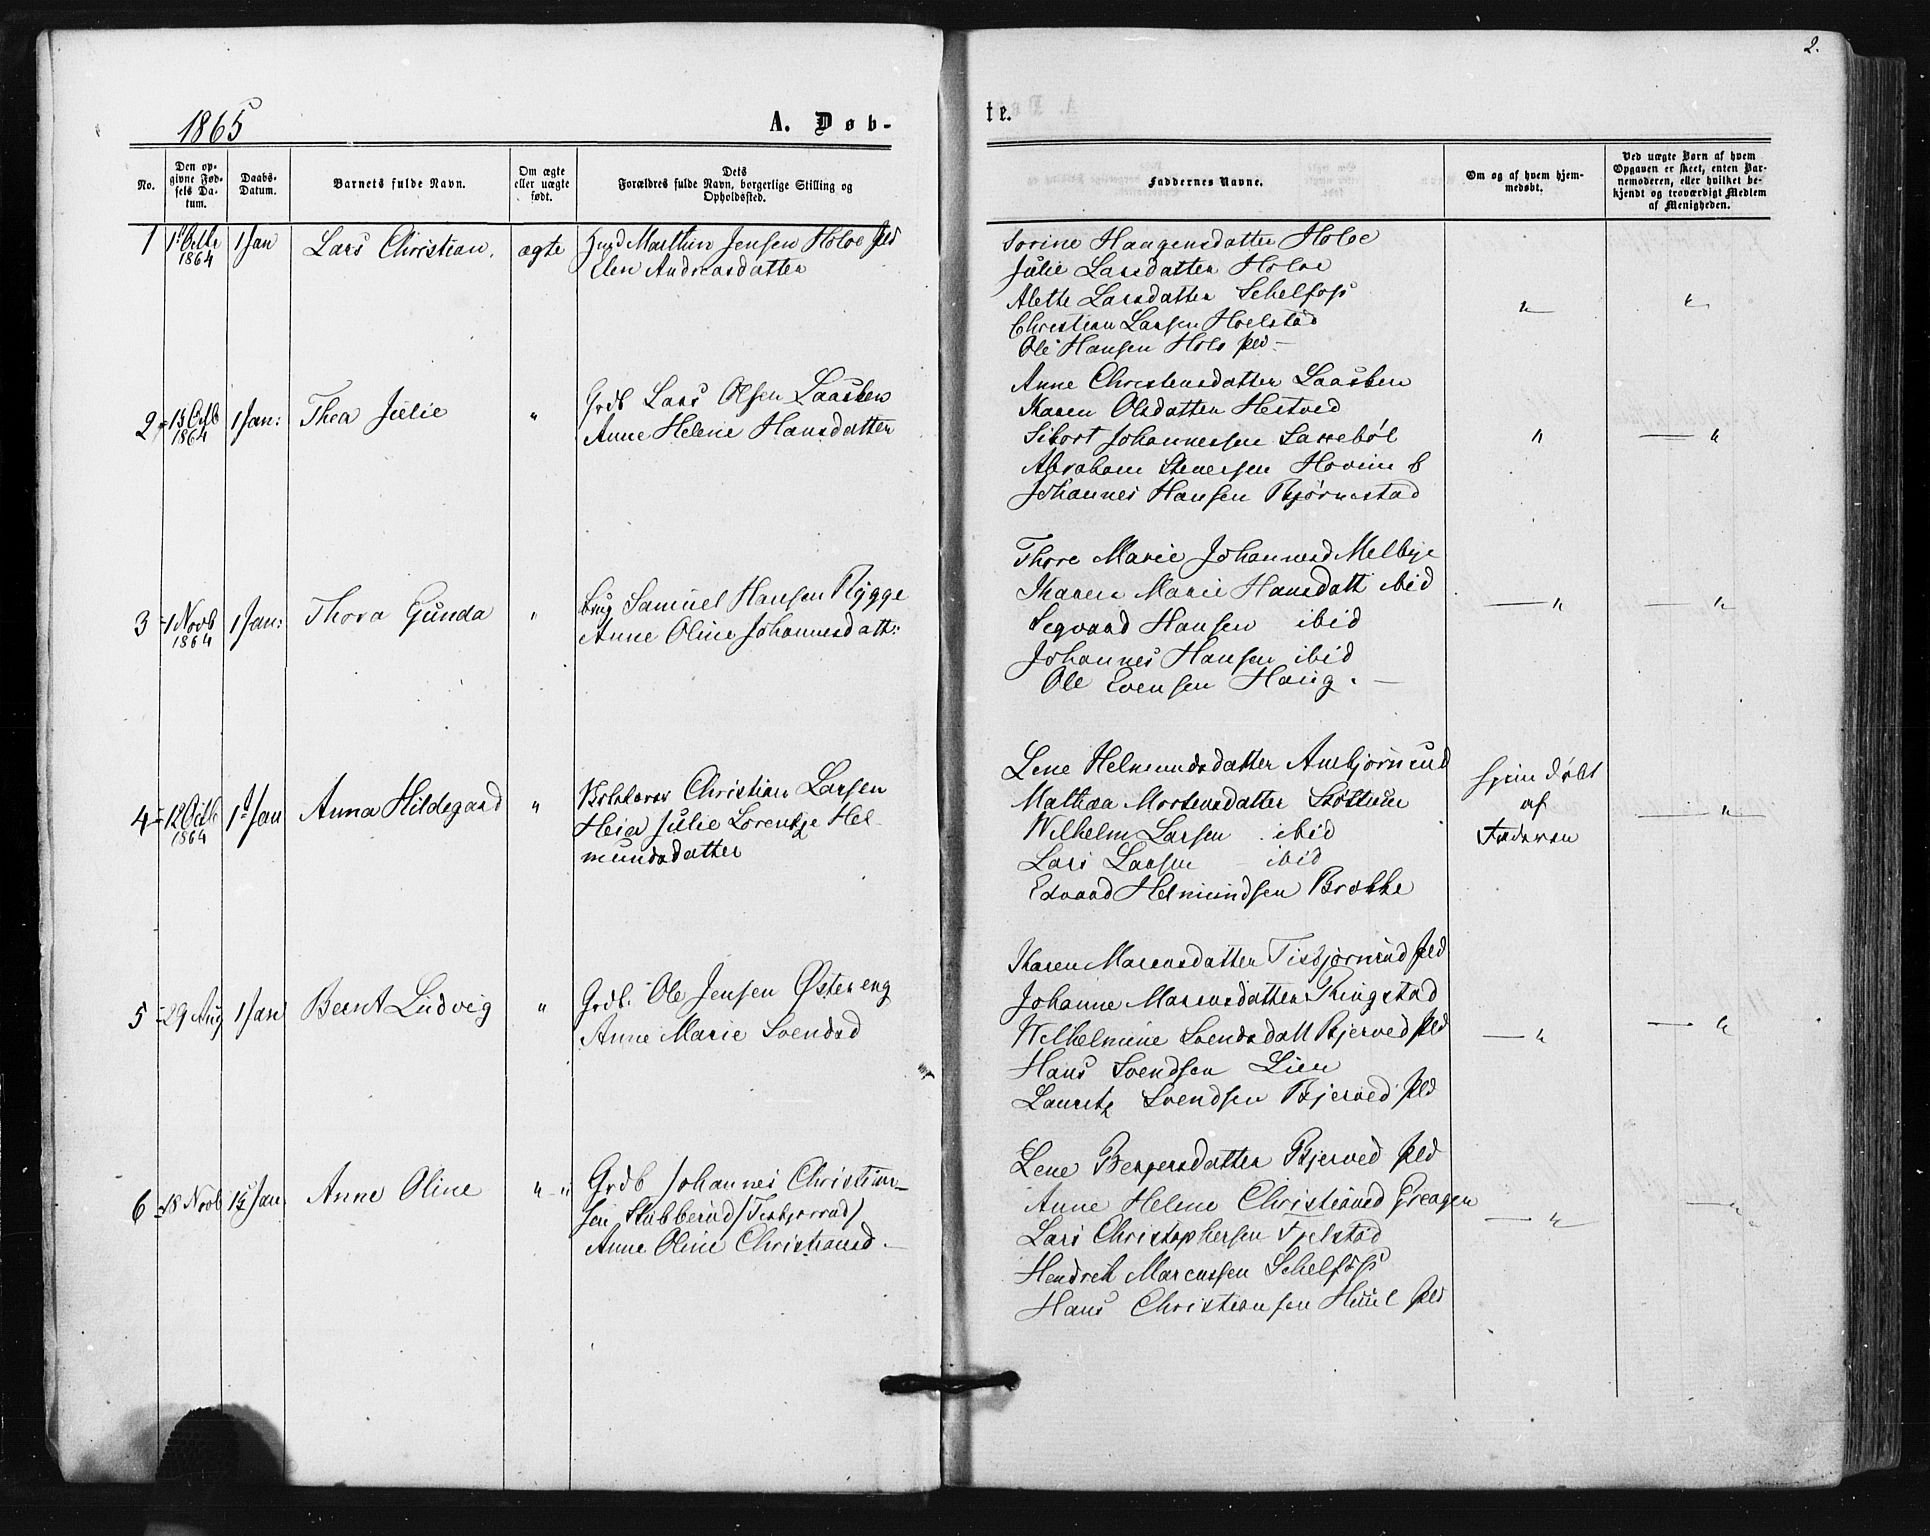 2.
1865
A. Døb-
te.
No.
Den op-
givne Fød-
sels Da-
tum.
Daabs-
Datum.
Barnets fulde Navn.
Om ægte
eller uægte
født.
Dets
Forældres fulde Navn, borgerlige Stilling og
Opholdssted.
Faddernes Navne.
Om og af hvem hjem-
medøbt.
Ved uægte Børn af hvem
Opgaven er skeet, enten Bar-
nemoderen, eller hvilket be-
kjendt og troværdigt Medlem
af Menigheden.
1
1864
1 Jan
Lars Christian.
ægte
Marthin Jensen Holoe
Elen Andreasdatter
Sorine Haugensdatter Holoe
Julie Larsdatter Holoe
Alette Larsdatter Schelfoss
Christian Larsen Hoelstad
Ole Hansen Holo
"
"
2
15 Octb
1864
1 Jan:
Thea Julie
"
Grdb Lars Olsen Laasken
Anne Helene Hansdatter
Anne Christensdatter Laasken
Karen Olsdatter Hestved
Johannessen
Abraham Hovin &
Johannes Hansen Bjørnestad
"
— "
3
1 Novb
1864
1 Jan:
Thora Gunda
"
Samuel Hansen Rygge
Anne Oline Johannesdatt:
Thore Marie Johannesd Melbye
Karen Marie Hansdatt ibid
Segvard Hansen ibid
Johannes Hansen ibid
Ole Evensen Haug. —
— "
— "
4
12 Octb
1864
1 Jan
Anna Hildegaard
"
Christian Larsen
Heier Julie Lorentze Hel-
mundsdatter
Lene Helmundsdatter Ambjørnrud
Mathea Mortensdatter Støttum
Wilhelm Larsen ibid
Lars Larsen — ibid
Edvard Helmundsen Brække
hjem døbt
af
Faderen
— " —
5
29 Aug
1 Jan
Bernt Ludvig
"
Grdb. Ole Jensen Østereng
Anne Marie Svendsd
Karen Marensdatter Tisbjørnrud
Johanne Marensdatter Ringstad
Wilhelmine Svendsdatt Bjerved
Hans Svendsen Lier
Lauritz Svendsen Bjerved
— "
— "
6
18 Novb
15 Jan.
Anne Oline
" - "
Grdb Johannes Christian-
sen Stubberud /Tisbjørnrud/
Anne Oline Christiansd. —
Lene Bergersdatter Bjerved
Anne Helene Christiansd
Lars Christophersen Fjelstad
Hendrik Marcussen Schelfoss
Hans Christiansen
— " —
— "